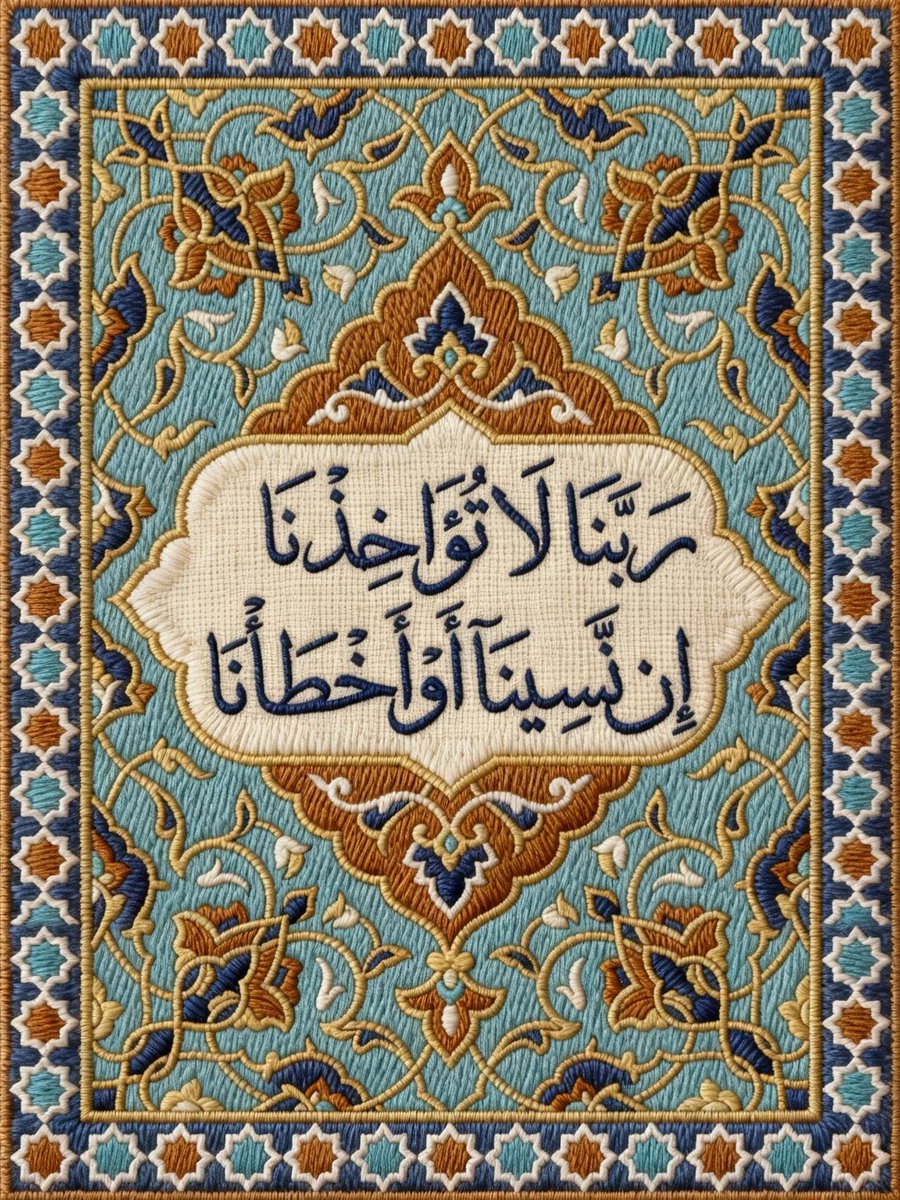 رَبَّنَا لَا تُؤَاخِذْنَا
إِن نَّسِينَآ أَوْ أَخْطَأْنَا